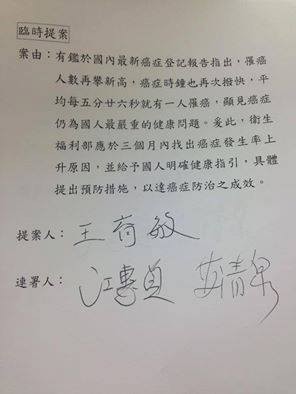 臨時提案
案由：有鑑於國內最新癌症登記報告指出，罹癌
人數再攀新高，癌症時鐘也再次撥快，平
均每五分廿六秒就有一人罹癌，顯見癌症
仍為國人最嚴重的健康問題。爰此，衛生
福利部應於三個月內找出癌症發生率上
升原因，並給予國人明確健康指引，具體
提出預防措施，以達癌症防治之成效。
提案人：王育敏
連署人：江惠貞 蘇清泉